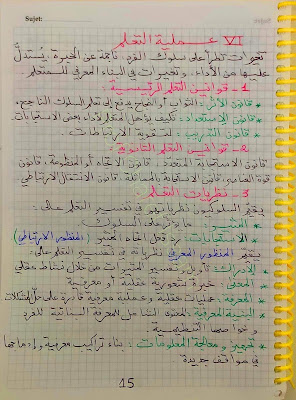 Sujet:
VI عملية التعلم
تغيرات تطرأ على سلوك الفرد، ناتجة عن الخبرة، يستدل
عليها من الأداء، وتغيرات في البناء المعرفي للمتعلم
1 - قوانين التعلم الرئيسية:
* قانون الأثر: الثواب أو النجاح يدفع إلى تعلم السلوك الناجح.
* قانون الاستعداد: تكيف يؤهل المتعلم لأداء بعض الاستجابات.
* قانون التدريب: لتقوية الارتباطات.
2 - قوانين التعلم الثانوية:
قانون الاستجابة المتعدد، قانون الاتجاه أو المنظومة، قانون
قوة العناصر، قانون الاستجابة بالمماثلة، قانون الانتقال الارتباطي.
3 - نظريات التعلم:
يقيم السلوكيون نظرياتهم في تفسير التعلم على:
* المثير: ما يؤثر على السلوك
* الاستجابات: رد فعل اتجاه المثير (المنظور الارتباطي)
يقيم المنظور المعرفي نظرياته في تفسير التعلم على:
* الإدراك: تأويل وتفسير المثيرات من خلال نشاط عقلي
* المعنى: خبرة شعورية عقلية أو معرفية
* المعرفة: عمليات عقلية وعملية معرفية قادرة على حل المشكلات
* البنية المعرفية: المحتوى الشامل للمعرفة البنائية للفرد
وخواصها التنظيمية
* تجهيز ومعالجة المعلومات: بناء تراكيب معرفية وإدماجها
في مواقف جديدة
15